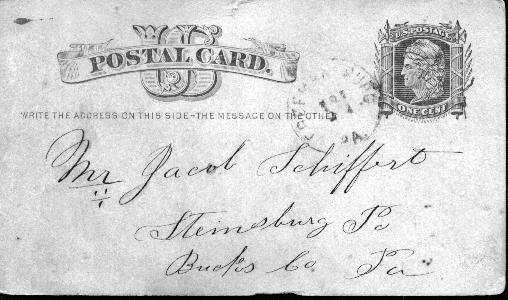 US
POSTAL CARD.
U.S. POSTAGE
ONE CENT
WRITE THE ADDRESS ON THIS SIDE-THE MESSAGE ON THE OTHER
PA.
Mr Jacob Schiffert
Steinsburg Po
Bucks Co Pa